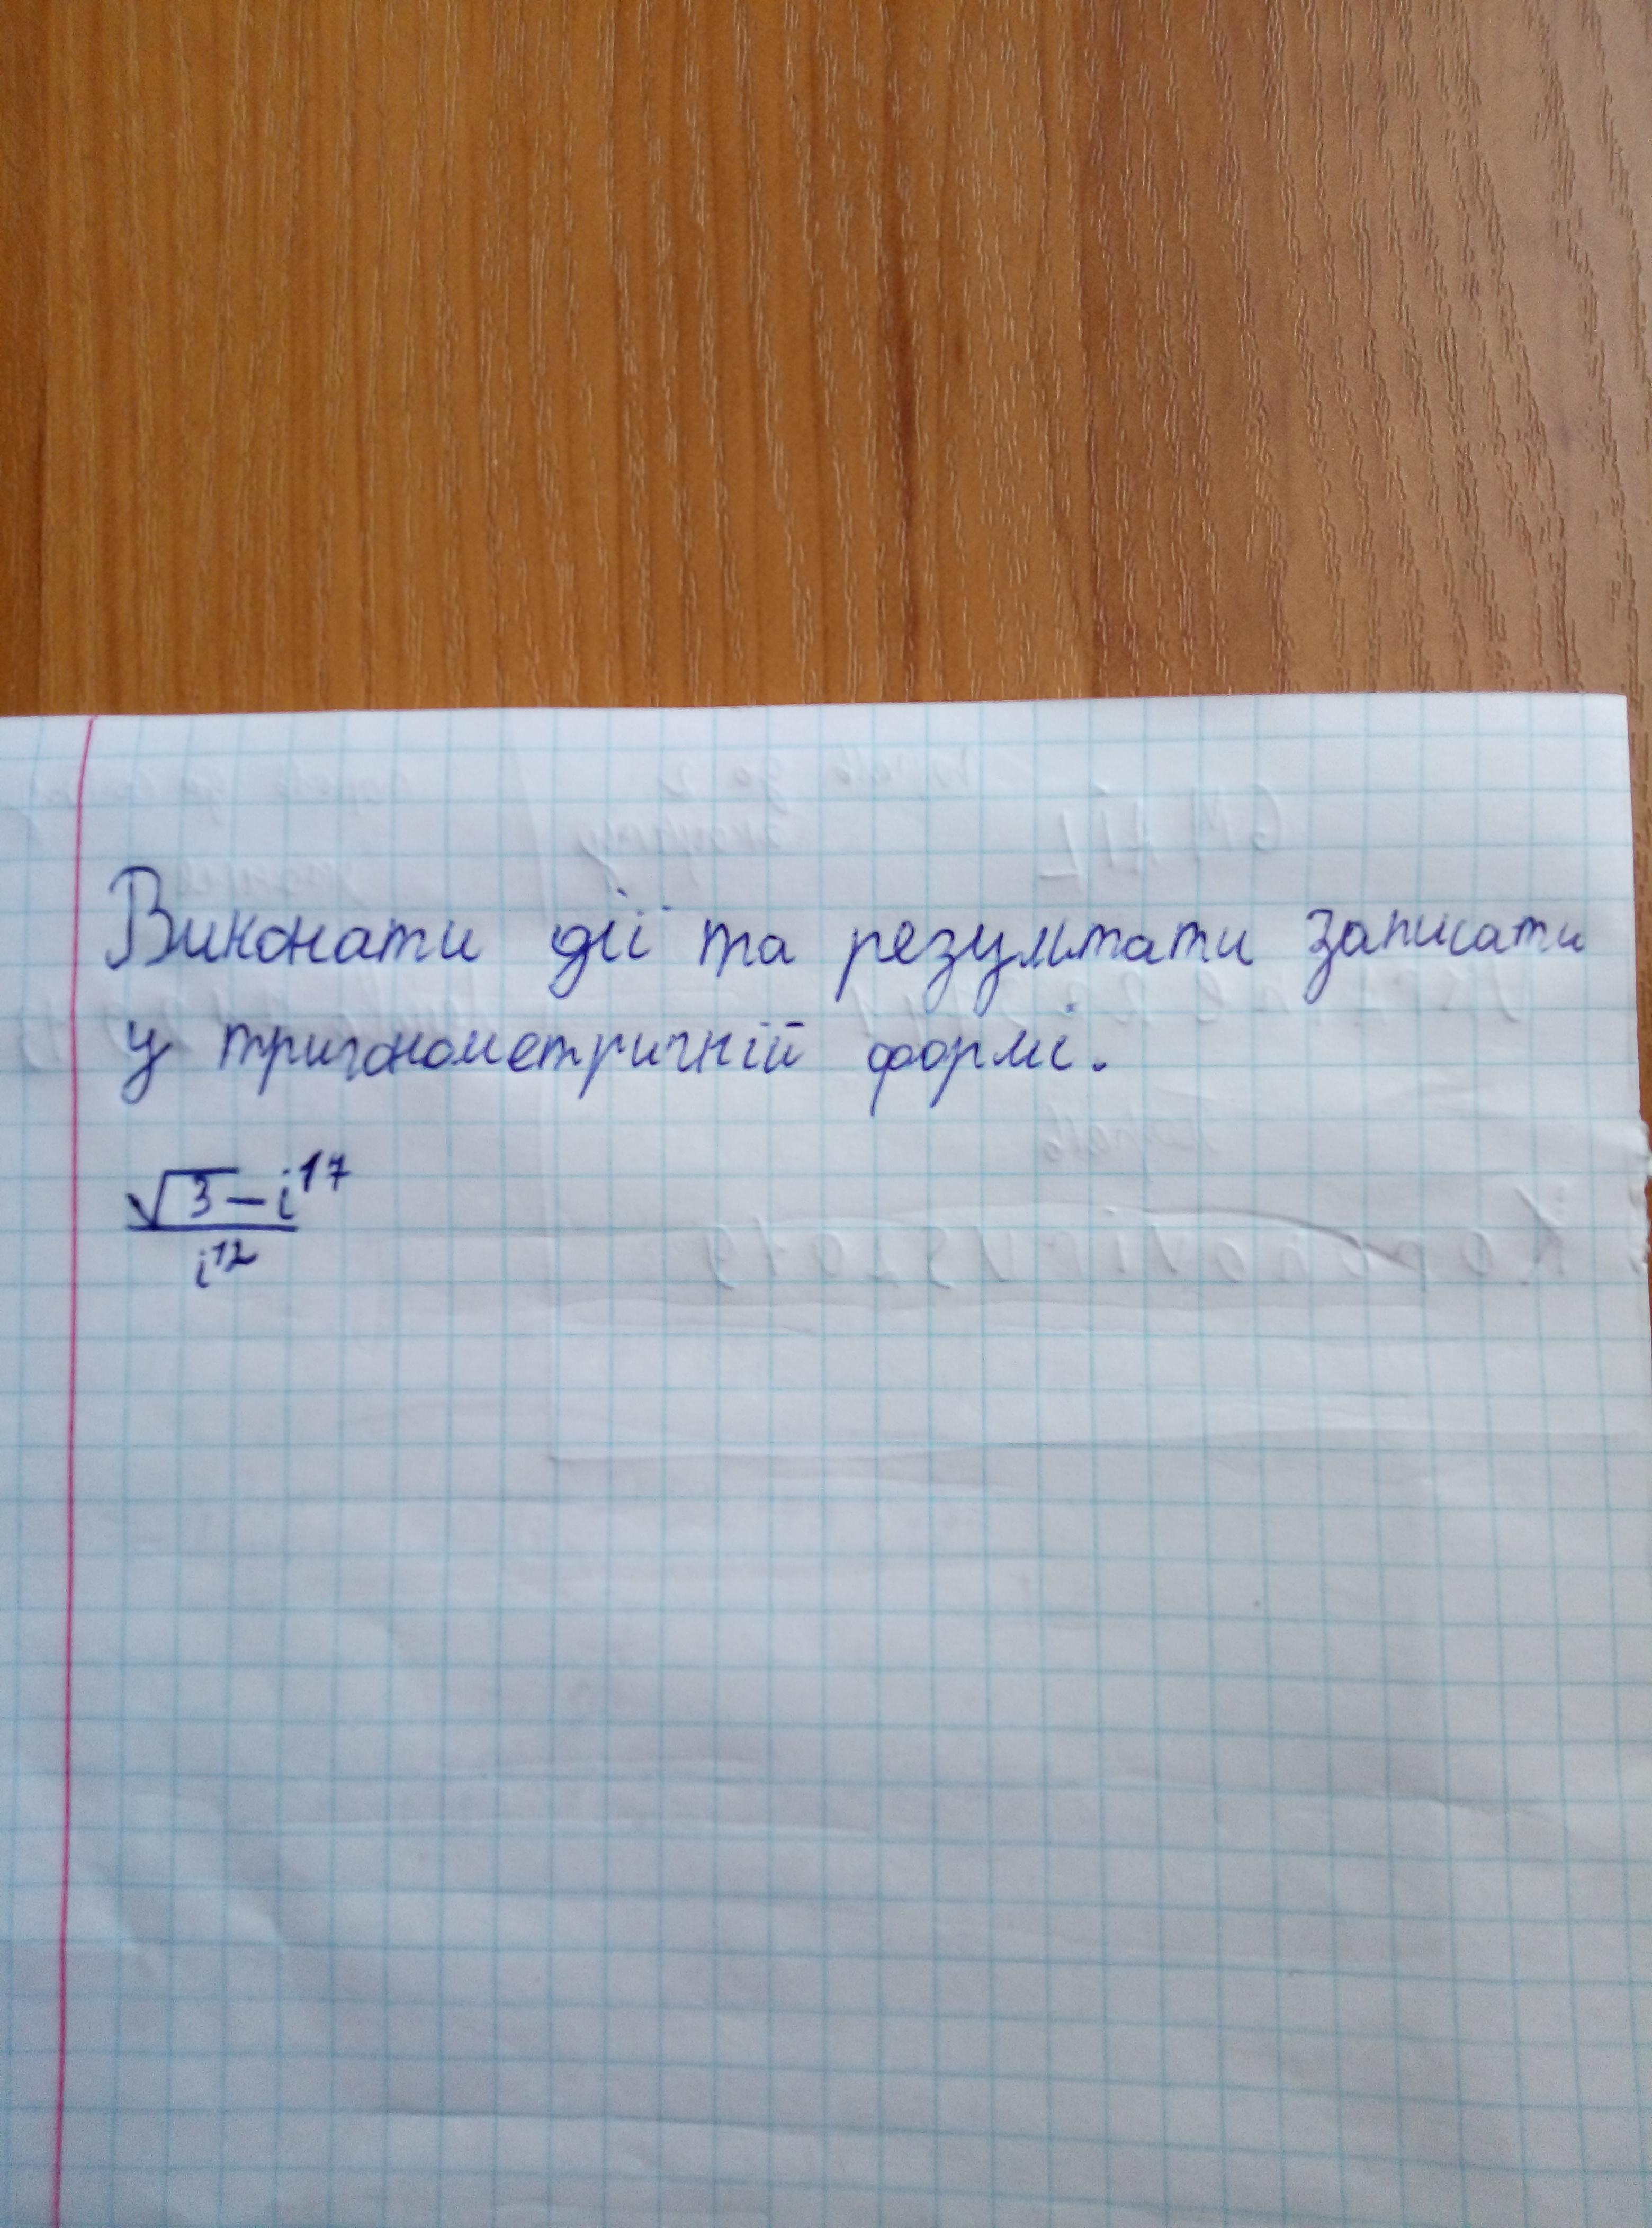 Виконати дії та результати записати
у тригонометричній формі.
√3 - i¹⁷
i¹²